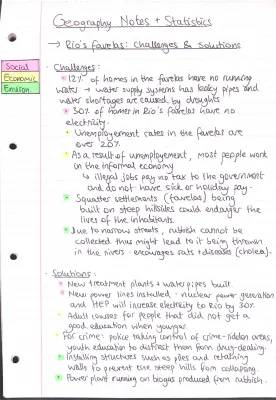 Geography Notes + Statistics
→ Rio's favelas: Challenges & Solutions
Social
Economic
Environ.
Challenges:
12% of homes in the favelas have no running
water → water supply systems has leaky pipes and
water shortages are caused by droughts
30% of homes in Rio's favelas have no
electricity.
Unemployement rates in the favelas are
over 20%
As a result of unemployement, most people work
in the informal economy
↳ illegal jobs pay no tax to the government
and do not have sick or holiday pay.
Squatter settlements (favelas) being
built on steep hillsides could endanger the
lives of the inhabitants.
Due to narrow streets, rubbish cannot be
collected thus might lead to it being thrown
in the rivers - encourages rats + diseases (cholera).
Solutions:
New treatment plants + water pipes built.
New power lines installed, nuclear power generation
and HEP will increase electricity to Rio by 30%
Adult courses for people that did not get a
good education when younger
For crime: police taking control of crime-ridden areas,
youth education to distract them from drug-dealing.
Installing structures such as piles and retaining
walls to prevent the steep hills from collapsing.
Power plant running on biogas produced from rubbish.